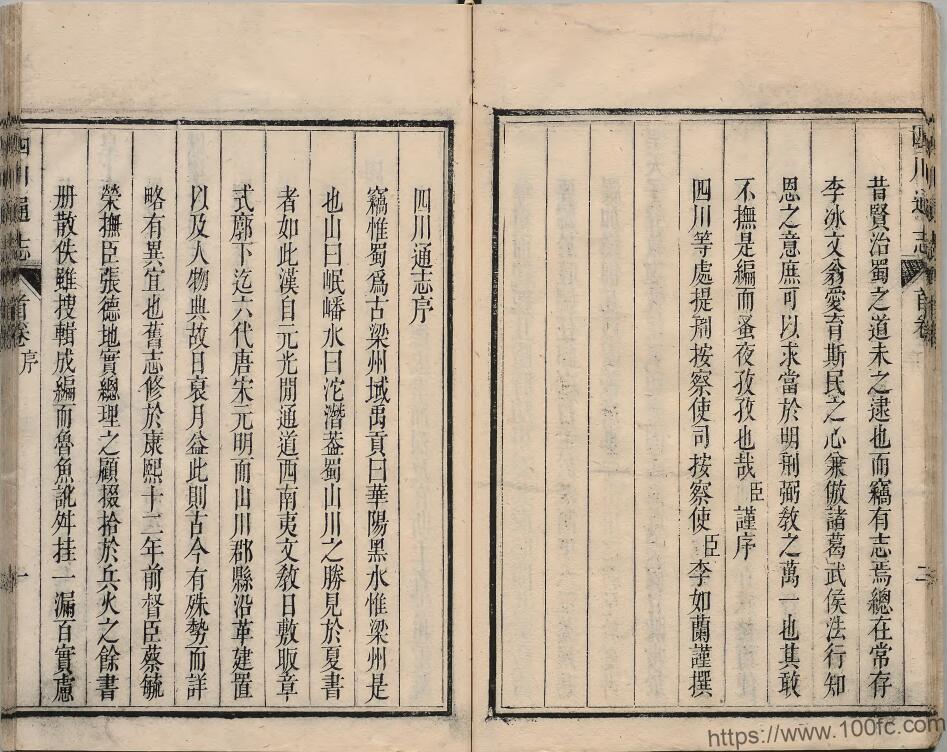 四川通志
首卷
序
二
昔賢治蜀之道未之逮也而竊有志焉總在常存
李冰文翁愛育斯民之心兼倣諸葛武侯法行知
恩之意庶可以求當於明刑弼敎之萬一也其敢
不撫是編而蚤夜孜孜也哉臣謹序
四川等處提刑按察使司按察使臣李如蘭謹撰
四川通志序
竊惟蜀爲古梁州域禹貢曰華陽黑水惟梁州是
也山曰岷嶓水曰沱潛葢蜀山川之勝見於夏書
者如此漢自元光閒通道西南夷文敎日敷販章
式廓下迄六代唐宋元明而山川郡縣沿革建置
以及人物典故日裒月益此則古今有殊勢而詳
略有異宜也舊志修於康熙十二年前督臣蔡毓
榮撫臣張德地實總理之顧掇拾於兵火之餘書
册散佚雖搜輯成編而魯魚訛舛挂一漏百實慮
四川通志
首卷
序
一
https://www.100fc.com